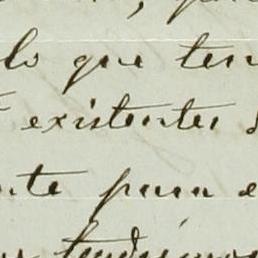 lo que ten
existentes
nte para e
tendremos